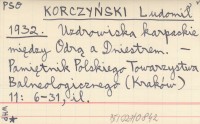 PSO
KORCZYŃSKI Ludomił
1932. Uzdrowiska karpackie
między Odrą a Dniestrem. —
Pamiętnik Polskiego Towarzystwa
Balneologicznego (Kraków)
11: 6-31, il.